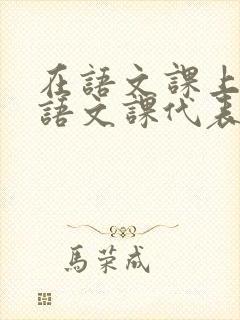 在語文課上
語文課代表
馬荣成